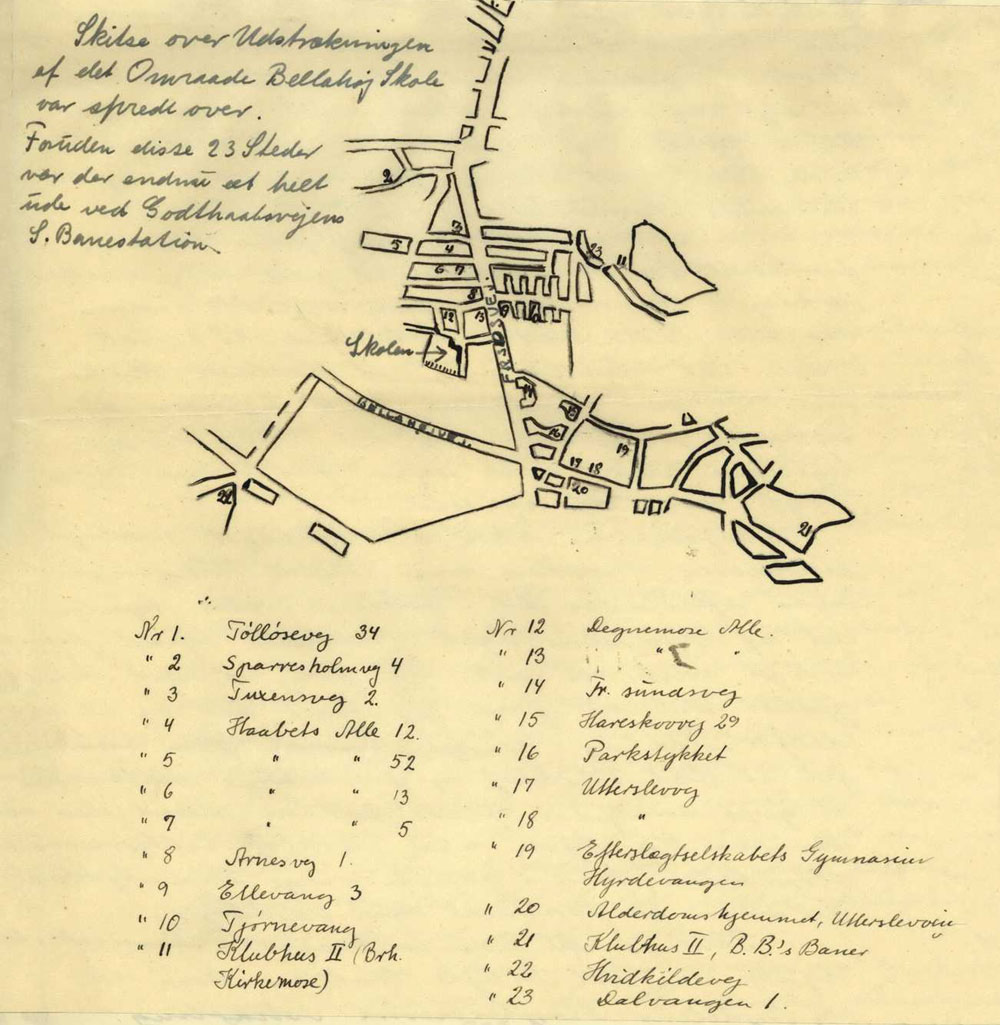 Skitse over Udstrækningen
af det Omraade Bellahøj Skole
var spredt over.
Foruden disse 23 Steder
var der endnu et helt
ude ved Godthaabsvejens
S. Banestation
2
3
5
4
6 7
8
9
12
13
23
11
Skolen
FRSDSVEJ.
BELLAHØJVEJ.
14
15
16
17 18
19
20
21
22
Nr 1. Tölløseveg 34
" 2 Sparresholmveg 4
" 3 Tuxensveg 2.
" 4 Haabets Alle 12.
" 5 " " 52
" 6 " " 13
" 7 " " 5
" 8 Arnesveg 1.
" 9 Ellevang 3
" 10 Tjørnevang
" 11 Klubhus II (Brh.
Kirkemose)
Nr 12 Degnemose Alle.
" 13 " "
" 14 Fr. sundsveg
" 15 Hareskovveg 29
" 16 Parkstykket
" 17 Utterslevvg
" 18 "
" 19 Efterslægtselskabets Gymnasium
Hyrdevangen
" 20 Alderdomshjemmet,
" 21 Klubhus II, B. B.'s Baner
" 22 Hvidkildeveg
" 23 Dalvangen 1.